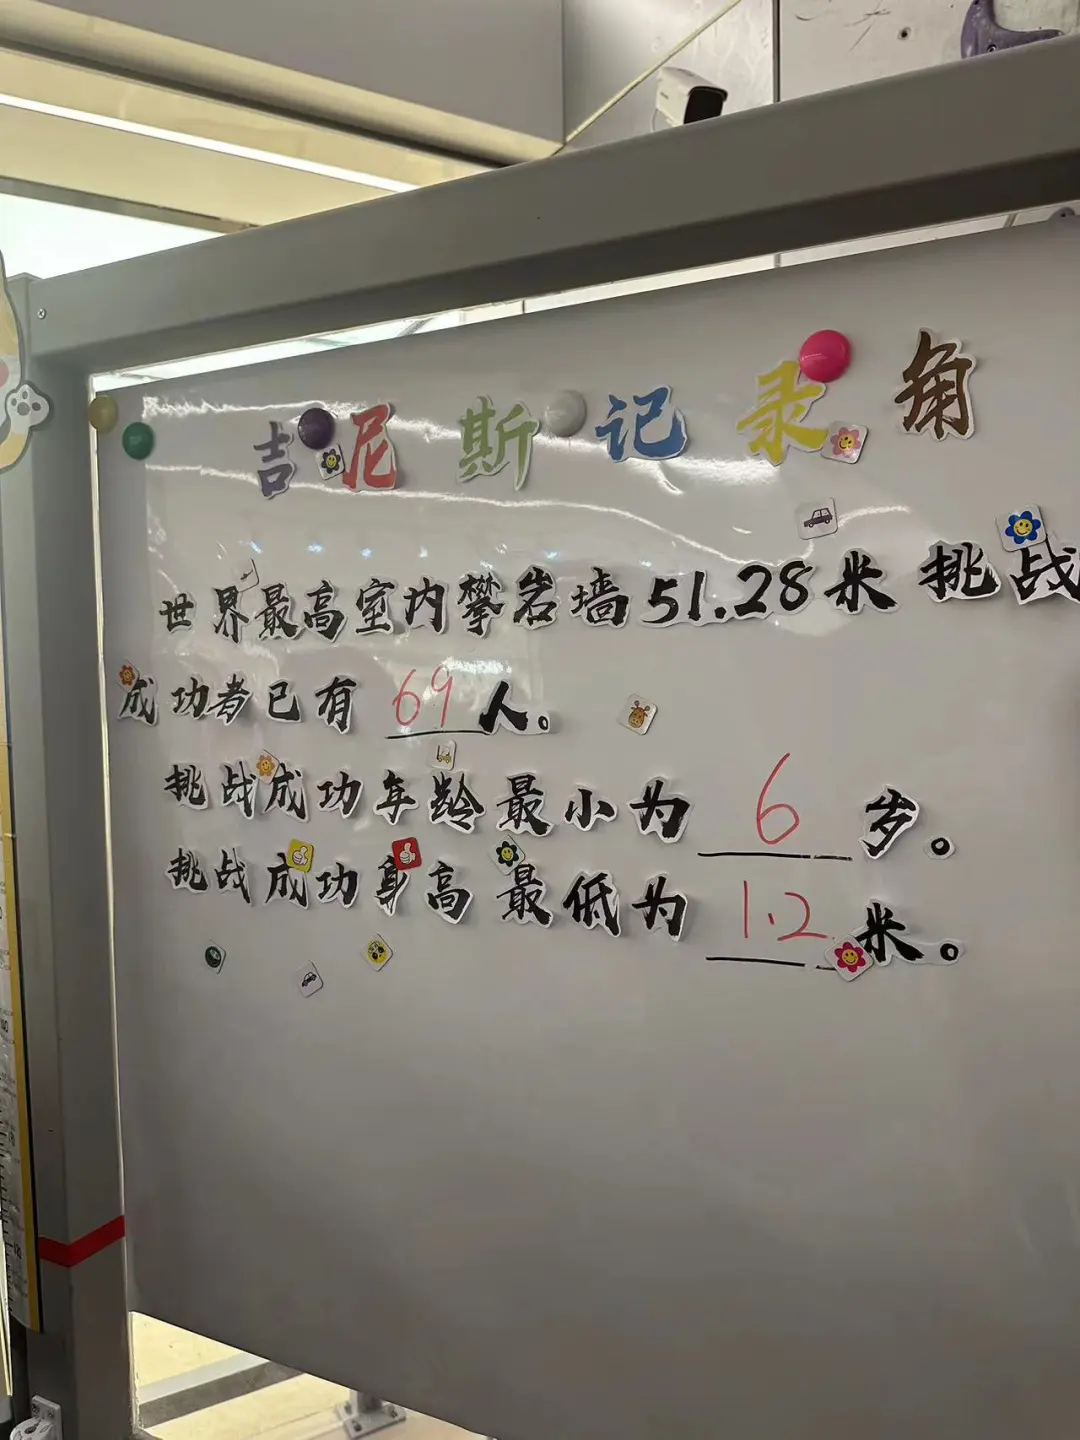 吉尼斯记录角
世界最高室内攀岩墙51.28米挑战
成功者已有 69 人。
挑战成功年龄最小为 6 岁。
挑战成功身高最低为 1.2 米。